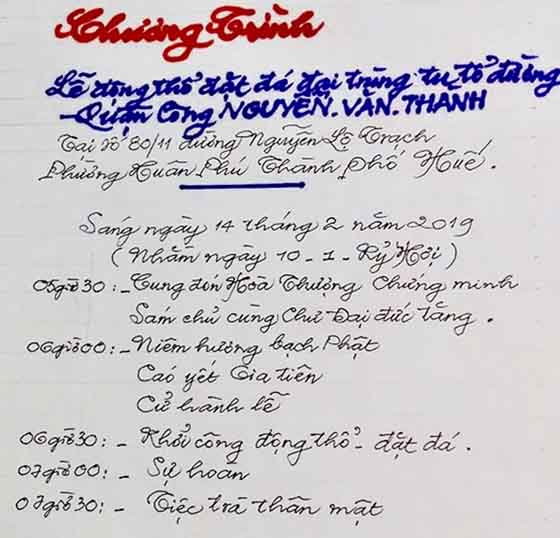 Chương Trình
Lễ động thổ đặt đá đại trùng tu tổ đường
- Quận Công NGUYỄN. VĂN. THÀNH
Tại số 80/11 đường Nguyễn Lộ Trạch
Phường Xuân Phú Thành Phố Huế.
Sáng ngày 14 tháng 2 năm 2019
(Nhằm ngày 10 - 1 - Kỷ Hợi)
05giờ30: - Cung đón Hòa Thượng Chứng minh
Sám chủ cùng Chư Đại đức tăng.
06giờ00: - Niêm hương bạch Phật
Cáo yết Gia tiên
Cử hành lễ
06giờ30: - Khởi công động thổ - đặt đá.
07giờ00: - Sự hoàn
07giờ30: - Tiệc trà thân mật